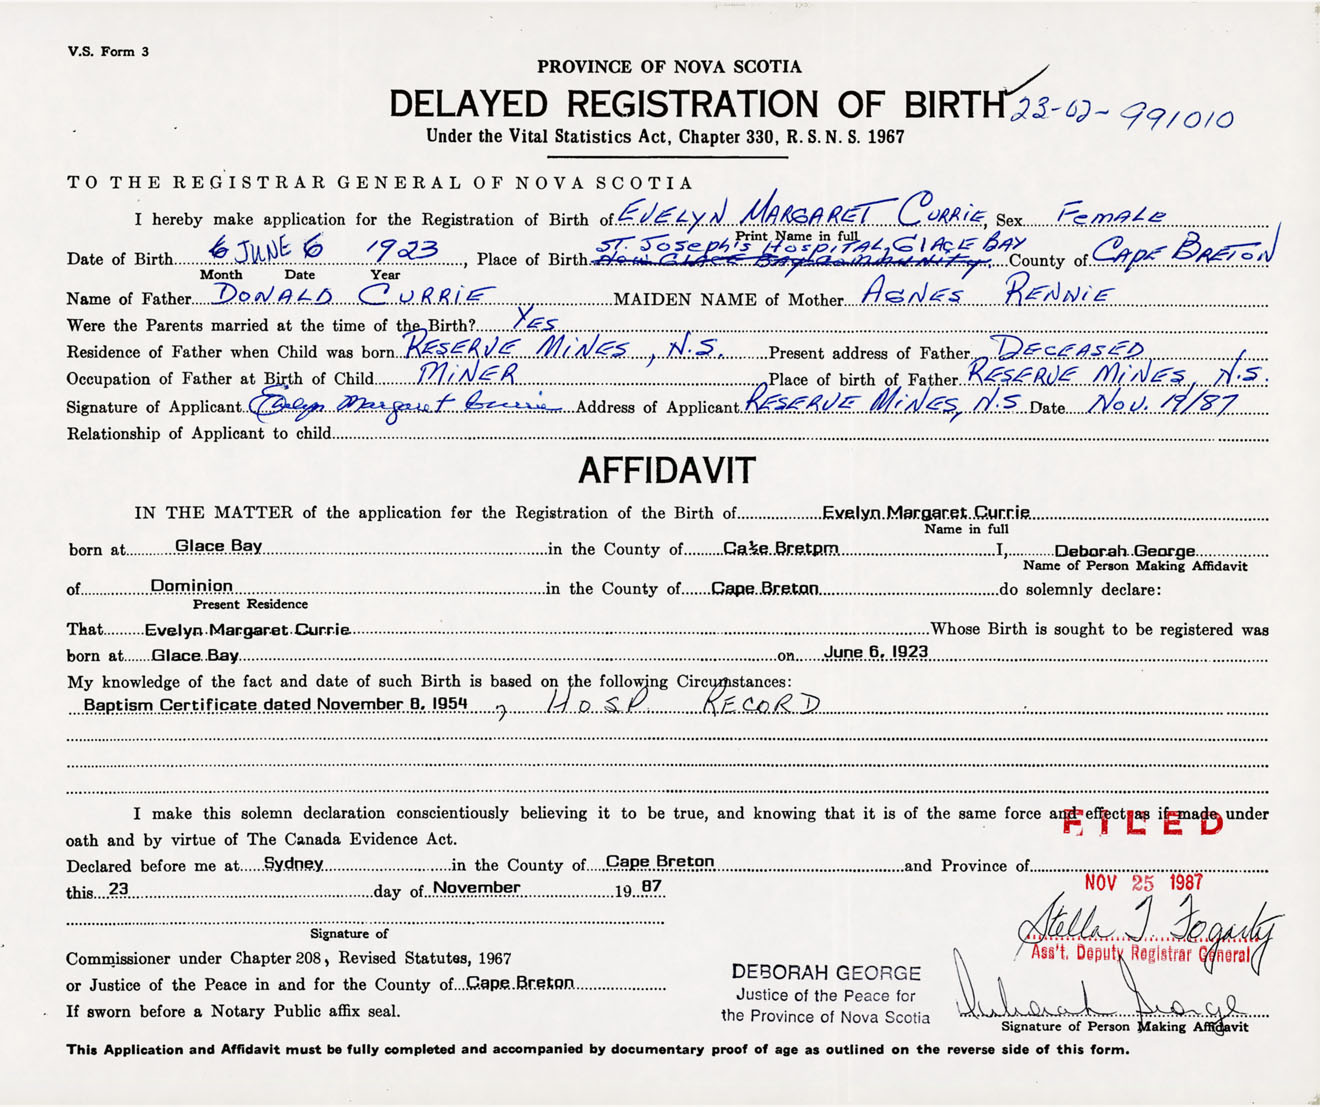 V.S. Form 3
PROVINCE OF NOVA SCOTIA
DELAYED REGISTRATION OF BIRTH 23-02-991010
Under the Vital Statistics Act, Chapter 330, R. S. N. S. 1967
TO THE REGISTRAR GENERAL OF NOVA SCOTIA
I hereby make application for the Registration of Birth of EVELYN MARGARET CURRIE, Sex FEMALE
Print Name in full
Date of Birth 6 JUNE 6 1923, Place of Birth ST. JOSEPH'S HOSPITAL, GLACE BAY County of CAPE BRETON
Month Date Year
Name of Father DONALD CURRIE MAIDEN NAME of Mother AGNES RENNIE
Were the Parents married at the time of the Birth? YES
Residence of Father when Child was born RESERVE MINES, N.S. Present address of Father DECEASED
Occupation of Father at Birth of Child MINER Place of birth of Father RESERVE MINES, N.S.
Signature of Applicant Evelyn Margaret Currie Address of Applicant RESERVE MINES, N.S Date Nov. 19/87
Relationship of Applicant to child
AFFIDAVIT
IN THE MATTER of the application for the Registration of the Birth of Evelyn Margaret Currie
Name in full
born at Glace Bay in the County of Cake Bretpm I, Deborah George
Name of Person Making Affidavit
of Dominion in the County of Cape Breton do solemnly declare:
Present Residence
That Evelyn Margaret Currie Whose Birth is sought to be registered was
born at Glace Bay on June 6, 1923
My knowledge of the fact and date of such Birth is based on the following Circumstances:
Baptism Certificate dated November 8, 1954, HOSP RECORD
I make this solemn declaration conscientiously believing it to be true, and knowing that it is of the same force and effect as if made under
FILED
oath and by virtue of The Canada Evidence Act.
Declared before me at Sydney in the County of Cape Breton and Province of
this 23 day of November 19 87
NOV 25 1987
Stella T. Fogarty
Signature of
Ass't. Deputy Registrar General
Commissioner under Chapter 208, Revised Statutes, 1967
or Justice of the Peace in and for the County of Cape Breton
If sworn before a Notary Public affix seal.
DEBORAH GEORGE
Justice of the Peace for
the Province of Nova Scotia
Deborah George
Signature of Person Making Affidavit
This Application and Affidavit must be fully completed and accompanied by documentary proof of age as outlined on the reverse side of this form.